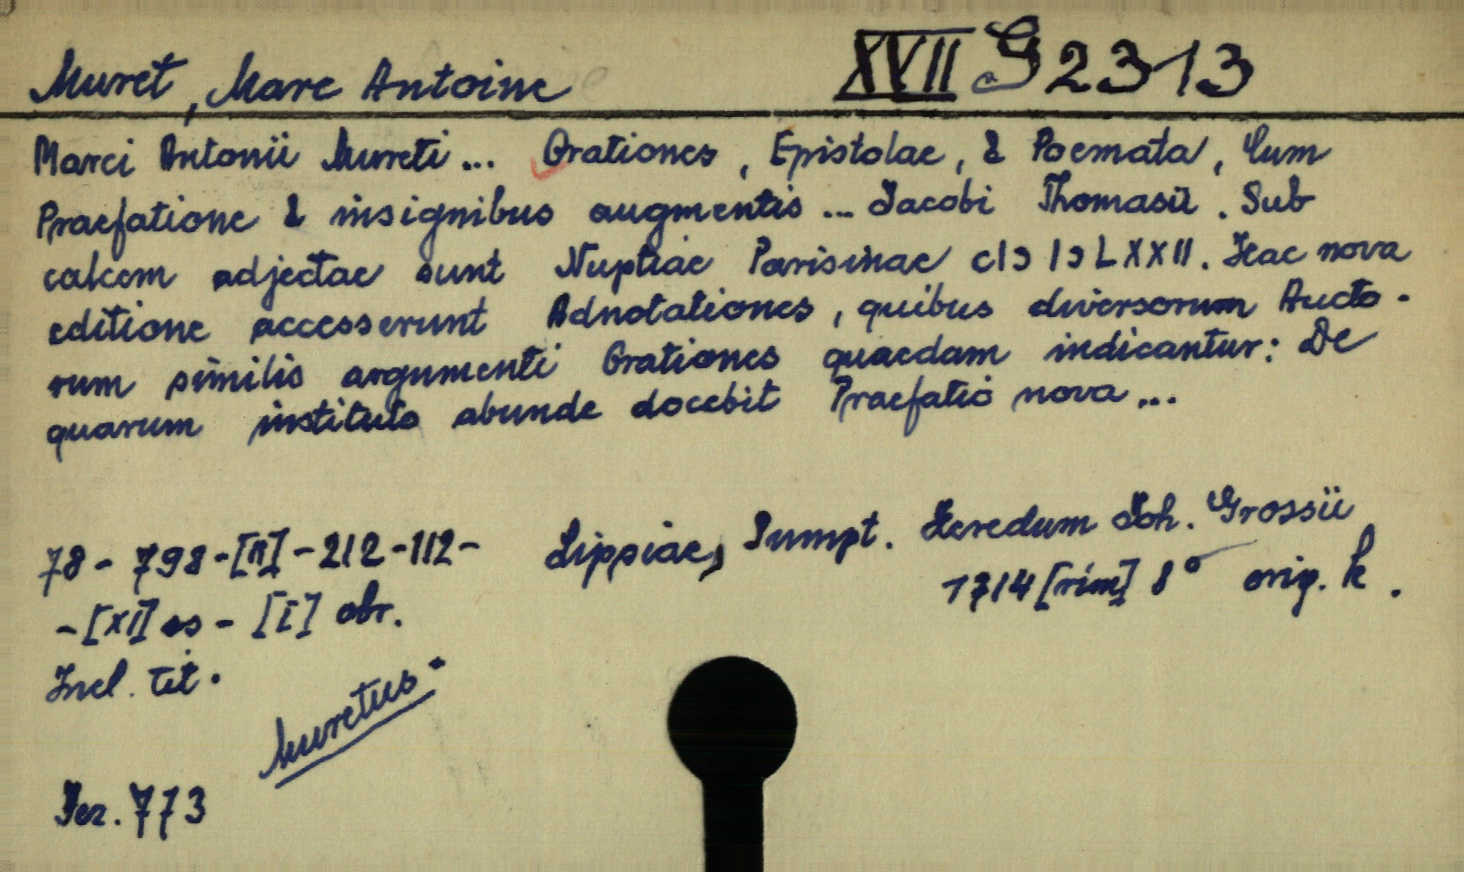 Muret, Marc Antoine XVII G 2313
Marci Antonii Mureti... Orationes, Epistolae, & Poemata, Cum
Praefatione & insignibus augmentis... Jacobi Thomasii. Sub
calcem adjectae sunt Nuptiae Parisinae cIↃ IↃ LXXII. Hac nova
editione accesserunt Adnotationes, quibus diversorum Aucto-
rum similis argumenti Orationes quaedam indicantur: De
quarum instituto abunde docebit Praefatio nova...
78 - 798 - [II] - 212 - 112 - Lippiae, Sumpt. Heredum Joh. Grossii
- [XI] es - [I] obr. 1714 [rim] 8° orig. k.
Incl. tit.
Muretus
Jez. 773